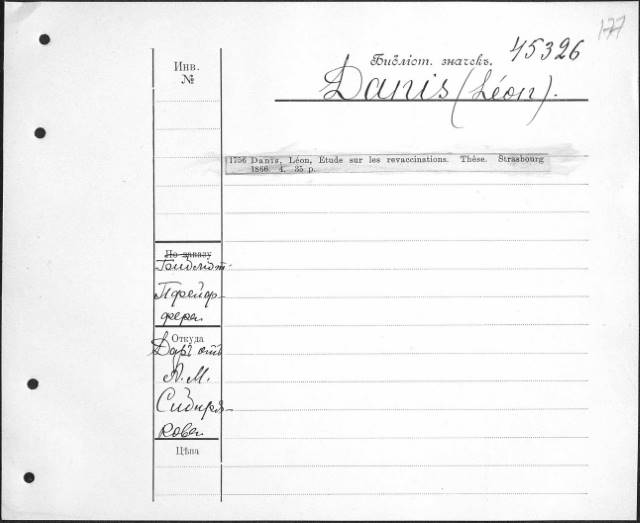 177
Библіот. значекъ. 45326
Danis (Léon).
Инв.
№
1756 Danis, Léon, Etude sur les revaccinations. Thèse. Strasbourg
1866. 4. 35 p.
По заказу
Библіот.
Пфейф-
фера
Откуда
Даръ отъ
А. М.
Сибиря-
кова
Цѣна